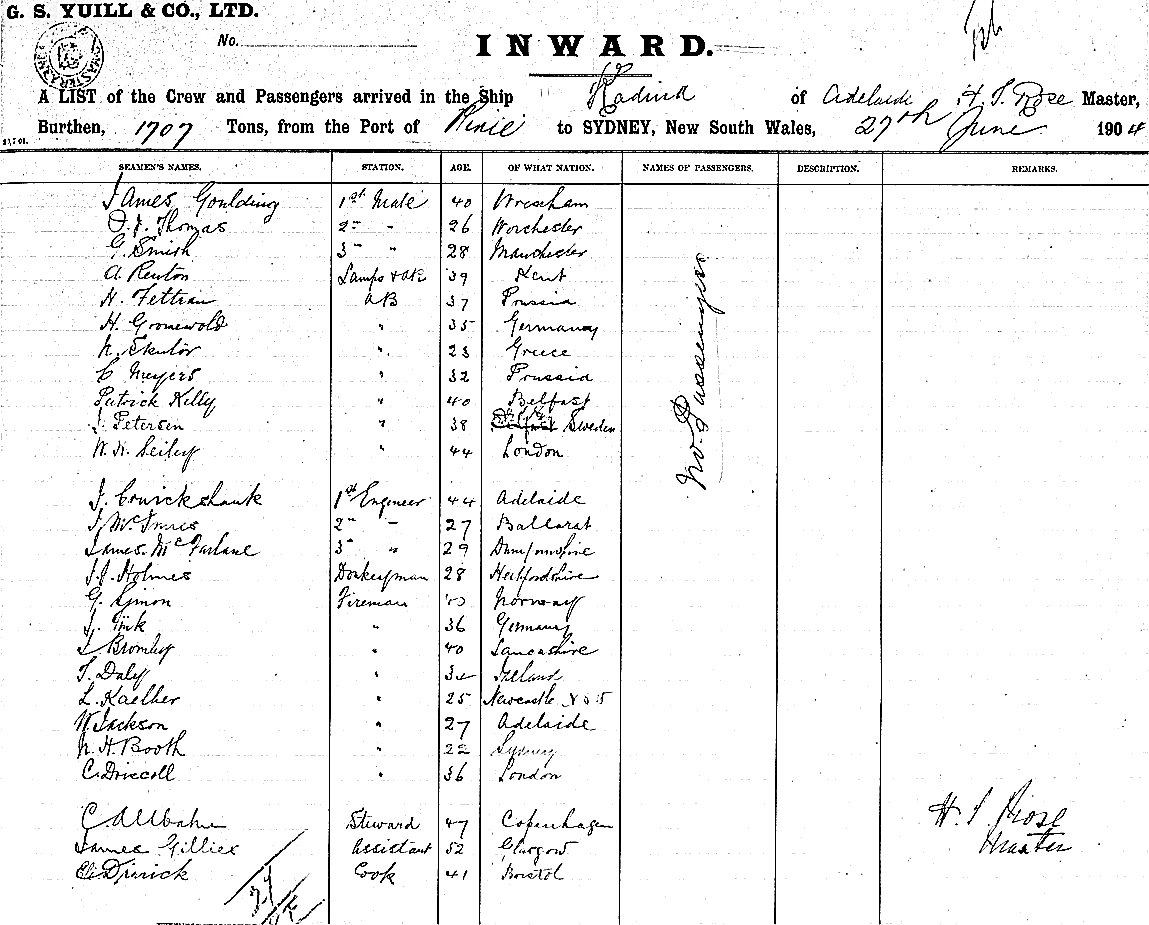 G. S. YUILL & CO., LTD.
No.
INWARD.
A LIST of the Crew and Passengers arrived in the Ship Kadina of Adelaide H. S. Rose Master,
Burthen, 1707 Tons, from the Port of Pirie to SYDNEY, New South Wales, 27th June 1904
SEAMEN'S NAMES. STATION. AGE. OF WHAT NATION. NAMES OF PASSENGERS. DESCRIPTION. REMARKS.
James Goulding 1st Mate 40 Wrexham
Thomas 2" " 26 Worchester
G. Smith 3" " 28 Manchester
A. Renton Lamps & AB 39 Kent
H. AB 37 Prussia
H. Gronewold " 35 Germany
N. " 23 Greece
C Meyers " 32 Prussia
Patrick Kelly " 40 Belfast
J. Petersen " 38 Sweden
W. H. " 44 London
No. Passengers
J. Cruickshank 1st Engineer 44 Adelaide
J. McInnes 2" " 27 Ballarat
James McFarlane 3" " 29
J. J. Holmes Donkeyman 28 Hertfordshire
G. Simon Fireman Norway
J. " 36 Germany
" 40 Lancashire
T. Daly " Ireland
L. Kaelher " 25 Newcastle N S W
W Jackson " 27 Adelaide
N. H. Booth " 22 Sydney
C. Driscoll " 36 London
C. Steward 47 Copenhagen
James Gillies Assistant 52 Glasgow
Cook 41 Bristol
H. S. Rose
Master